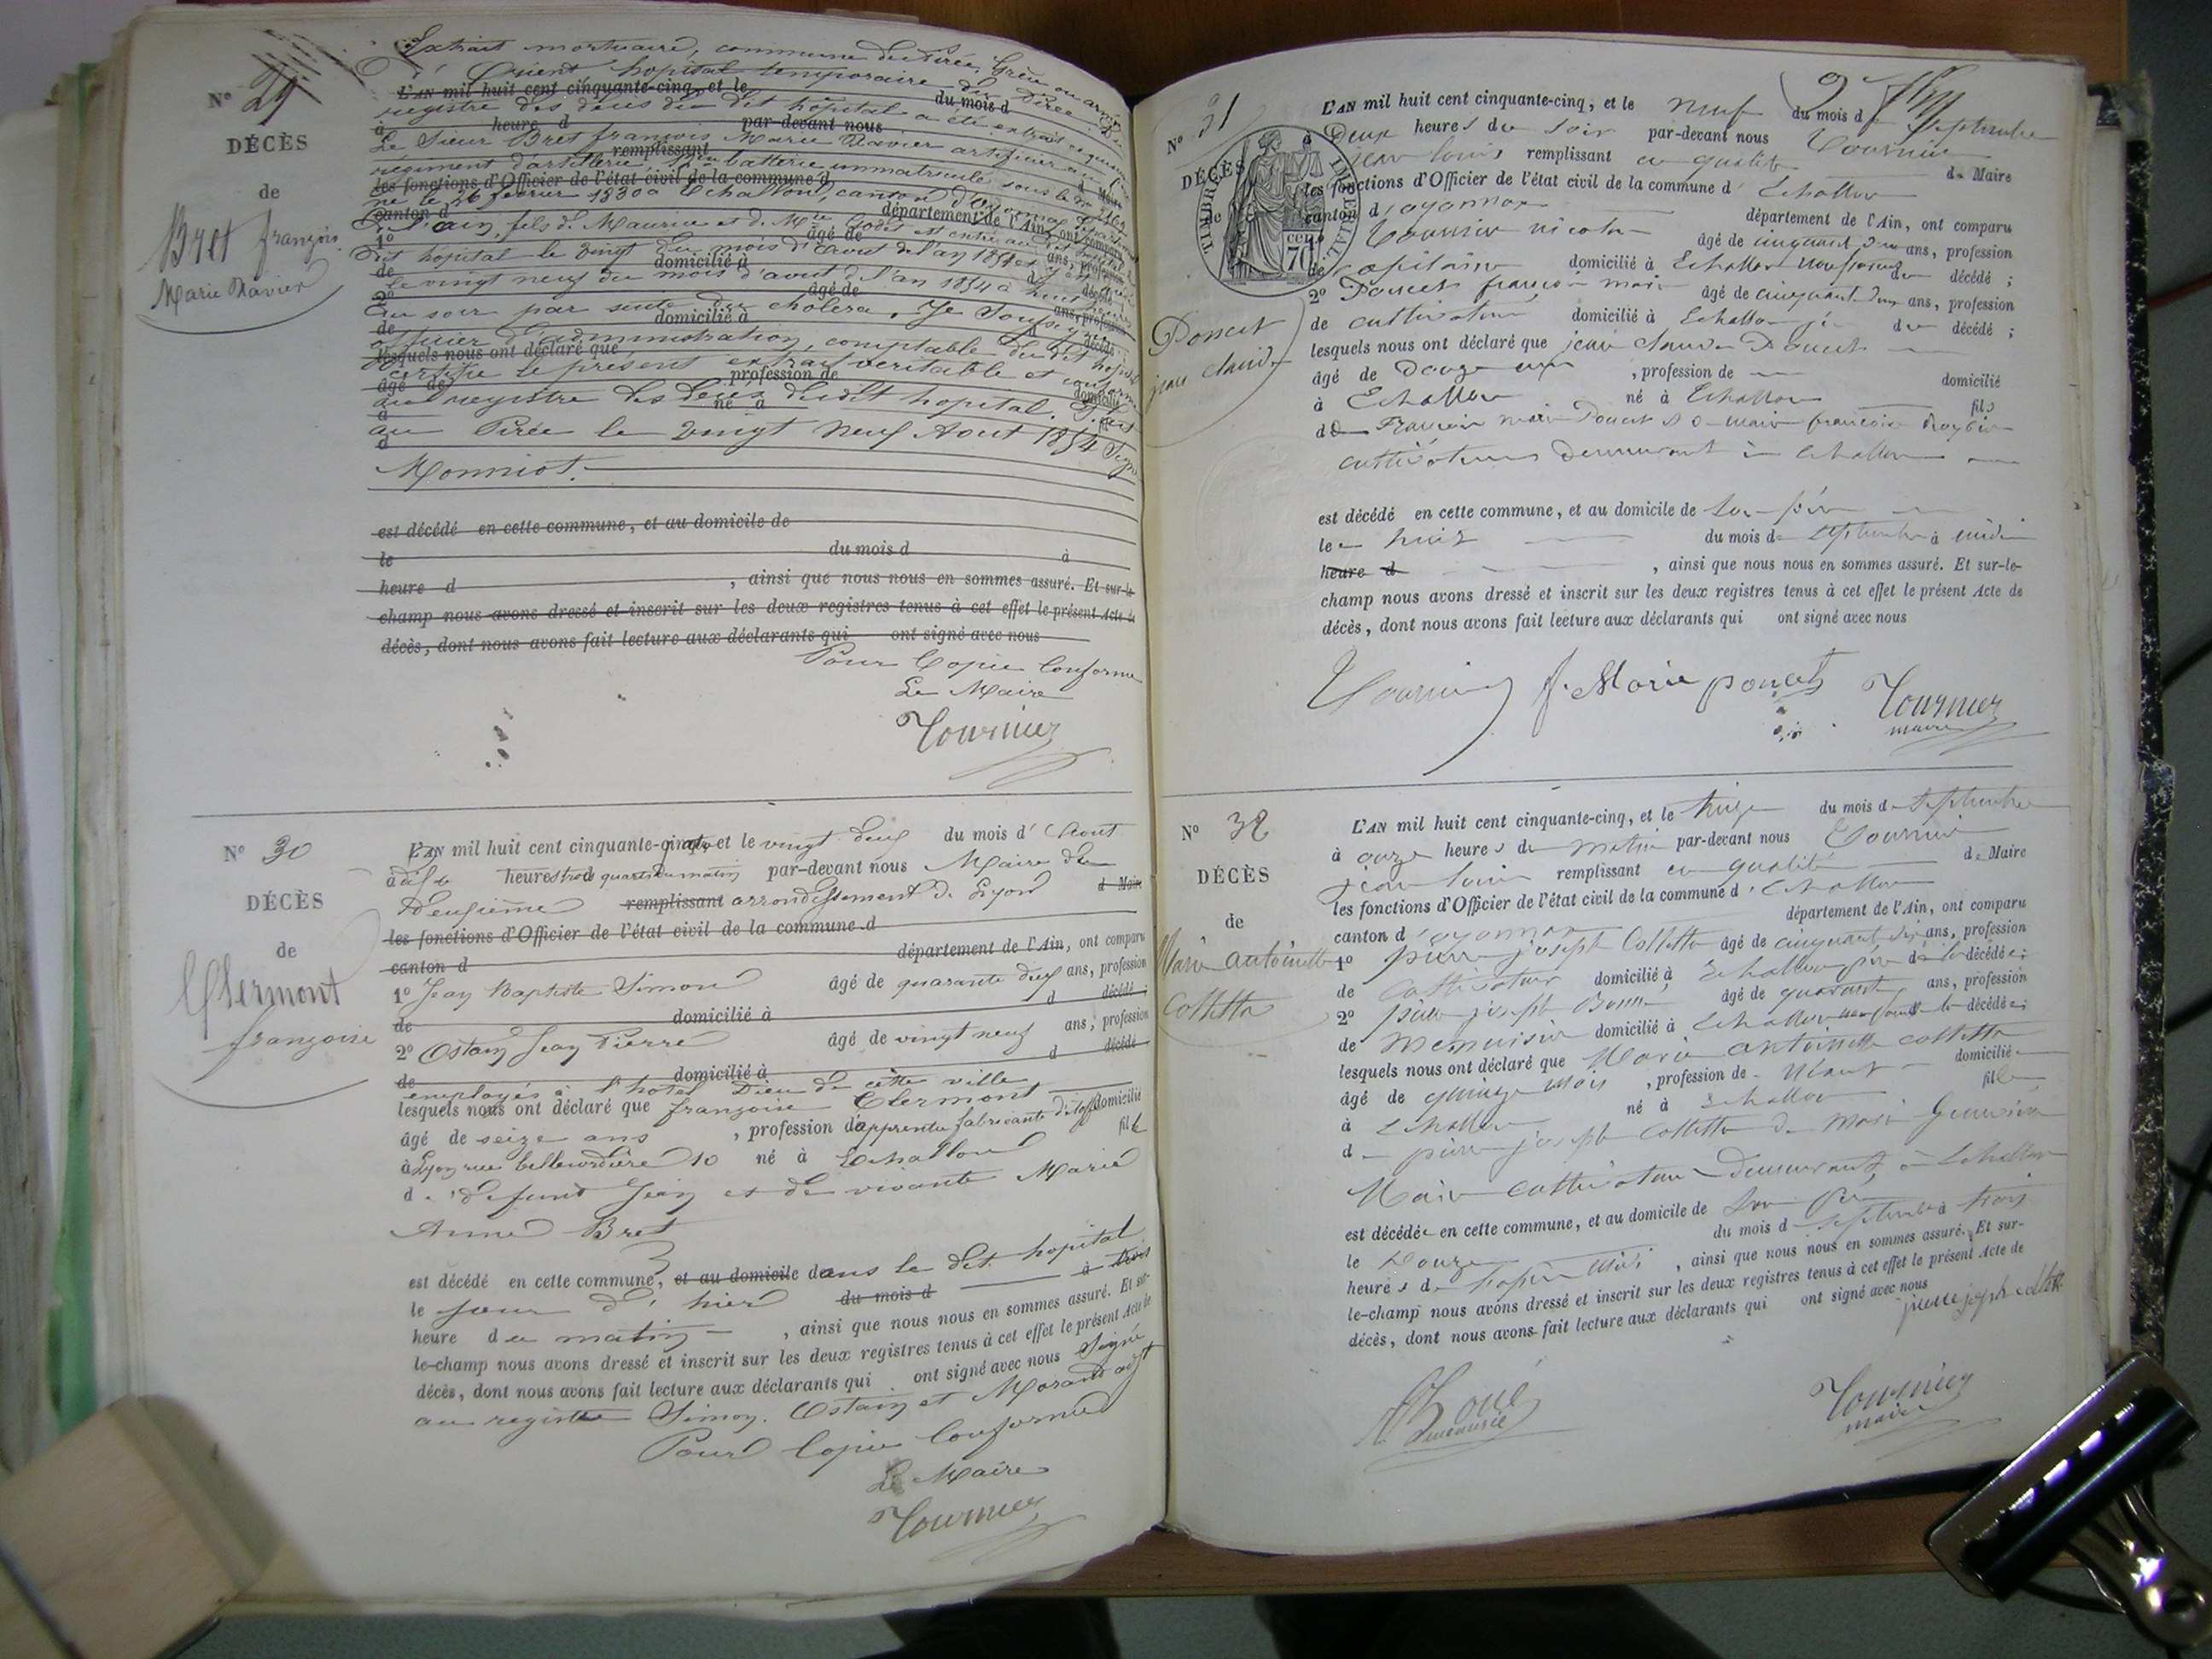 N° 29
DÉCÈS
de
Bret françois
Marie Xavier
Extrait mortuaire, commune du Pirée, Grèce
d'Orient hopital temporaire du Pirée
L'AN mil huit cent cinquante-cinq, et le du mois d
registre des décès du dit hôpital a été extrait ce qui
à heure d par-devant nous
Le Sieur Bret françois Marie Xavier artificier au
remplissant
régiment d'artillerie batterie immatriculé sous le n° 2169
les fonctions d'Officier de l'état civil de la commune d d Maire
né le 26 février 1830 à Echallon, canton d'Oyonnax
canton d département de l'Ain, ont comparu
de l'ain, fils de Maurice et de Godet est entré au dit hopital
1° âgé de ans, profession
dit hôpital le vingt du mois d'Aout de l'an 1854
de domicilié à d décédé
le vingt neuf du mois d'aout de l'an 1854 à huit heures
2° âgé de ans, profession
du soir par suite du choléra. Je Soussigné
de domicilié à d décédé ;
officier d'administration, comptable du dit hopital
lesquels nous ont déclaré que
certifie le présent extrait veritable et conforme
âgé de profession de domicilié
au registre des décès dudit hopital.
à né à
au Pirée le vingt neuf Aout 1854 Signé
d
Monniot.
est décédé en cette commune, et au domicile de
le du mois d à
heure d , ainsi que nous nous en sommes assuré. Et sur-le
champ nous avons dressé et inscrit sur les deux registres tenus à cet effet le présent Acte de
décès, dont nous avons fait lecture aux déclarants qui ont signé avec nous
Pour Copie Conforme
Le Maire
Tournier
N° 30
DÉCÈS
de
Clermont
françoise
L'AN mil huit cent cinquante-quatre et le vingt deux du mois d' Aout
à dix heures trois quarts du matin par-devant nous Maire du
deuxième remplissant arrondissement de Lyon d Maire
les fonctions d'Officier de l'état civil de la commune d
canton d département de l'Ain, ont comparu
1° Jean Baptiste Simon âgé de quarante deux ans, profession
de domicilié à d décédé ;
2° Ostain Jean Pierre âgé de vingt neuf ans, profession
de domicilié à d décédé
employés à l'hotel Dieu de cette ville
lesquels nous ont déclaré que françoise Clermont
âgé de seize ans , profession d'apprentie fabricante d'étoffes domicilié
à Lyon rue bellecordière 10 né à Echallon fille
de defunt Jean et de vivante Marie
Anne Bret
est décédé en cette commune, et au domicile dans le dit hopital
le jour d'hier du mois d à trois
heure du matin , ainsi que nous nous en sommes assuré. Et sur-
le-champ nous avons dressé et inscrit sur les deux registres tenus à cet effet le présent Acte de
décès, dont nous avons fait lecture aux déclarants qui ont signé avec nous Signé
au registre Simon. Ostain et Morand adjt
Pour Copie Conforme
Le Maire
Tournier
N° 31
DÉCÈS
de
TIMBRE IMPÉRIAL
70 cen.
Poncet
jean claude
L'AN mil huit cent cinquante-cinq, et le neuf du mois d Septembre
à Deux heures du soir par-devant nous Tournier
jean louis remplissant en qualité de Maire
les fonctions d'Officier de l'état civil de la commune d' Echallon
canton d'oyonnax département de l'Ain, ont comparu
Tournier nicolas âgé de cinquante deux ans, profession
de capitaine domicilié à Echallon non parent du décédé ;
2° Poncet françois marie âgé de cinquante deux ans, profession
de cultivateur domicilié à Echallon père du décédé ;
lesquels nous ont déclaré que jean claude Poncet
âgé de Douze ans , profession de domicilié
à Echallon né à Echallon fils
de François marie Poncet & de marie françoise
cultivateurs demeurant à Echallon
est décédé en cette commune, et au domicile de Son père
le huit du mois de Septembre à midi
heure d , ainsi que nous nous en sommes assuré. Et sur-le-
champ nous avons dressé et inscrit sur les deux registres tenus à cet effet le présent Acte de
décès, dont nous avons fait lecture aux déclarants qui ont signé avec nous
Tournier f. Marie poncet Tournier
maire
N° 32
DÉCÈS
de
Marie antoinette
Colletta
L'AN mil huit cent cinquante-cinq, et le treize du mois de Septembre
à onze heures du matin par-devant nous Tournier
jean louis remplissant en qualité de Maire
les fonctions d'Officier de l'état civil de la commune d' Echallon
canton d'oyonnax département de l'Ain, ont comparu
1° pierre joseph Colletta âgé de cinquante ans, profession
de cultivateur domicilié à Echallon père de la décédée ;
2° pierre joseph âgé de quarante ans, profession
de Menuisier domicilié à Echallon non parent de la décédée ;
lesquels nous ont déclaré que Marie antoinette colletta
âgé de quinze mois , profession de néant domiciliée
à Echallon né à Echallon fille
de pierre joseph Colletta & de marie
Marie cultivateurs Demeurant à Echallon
est décédée en cette commune, et au domicile de Son Père
le Douze du mois de Septembre à trois
heures de l'après Midi , ainsi que nous nous en sommes assuré. Et sur-
le-champ nous avons dressé et inscrit sur les deux registres tenus à cet effet le présent Acte de
décès, dont nous avons fait lecture aux déclarants qui ont signé avec nous
pierre joseph colletta
Tournier
maire